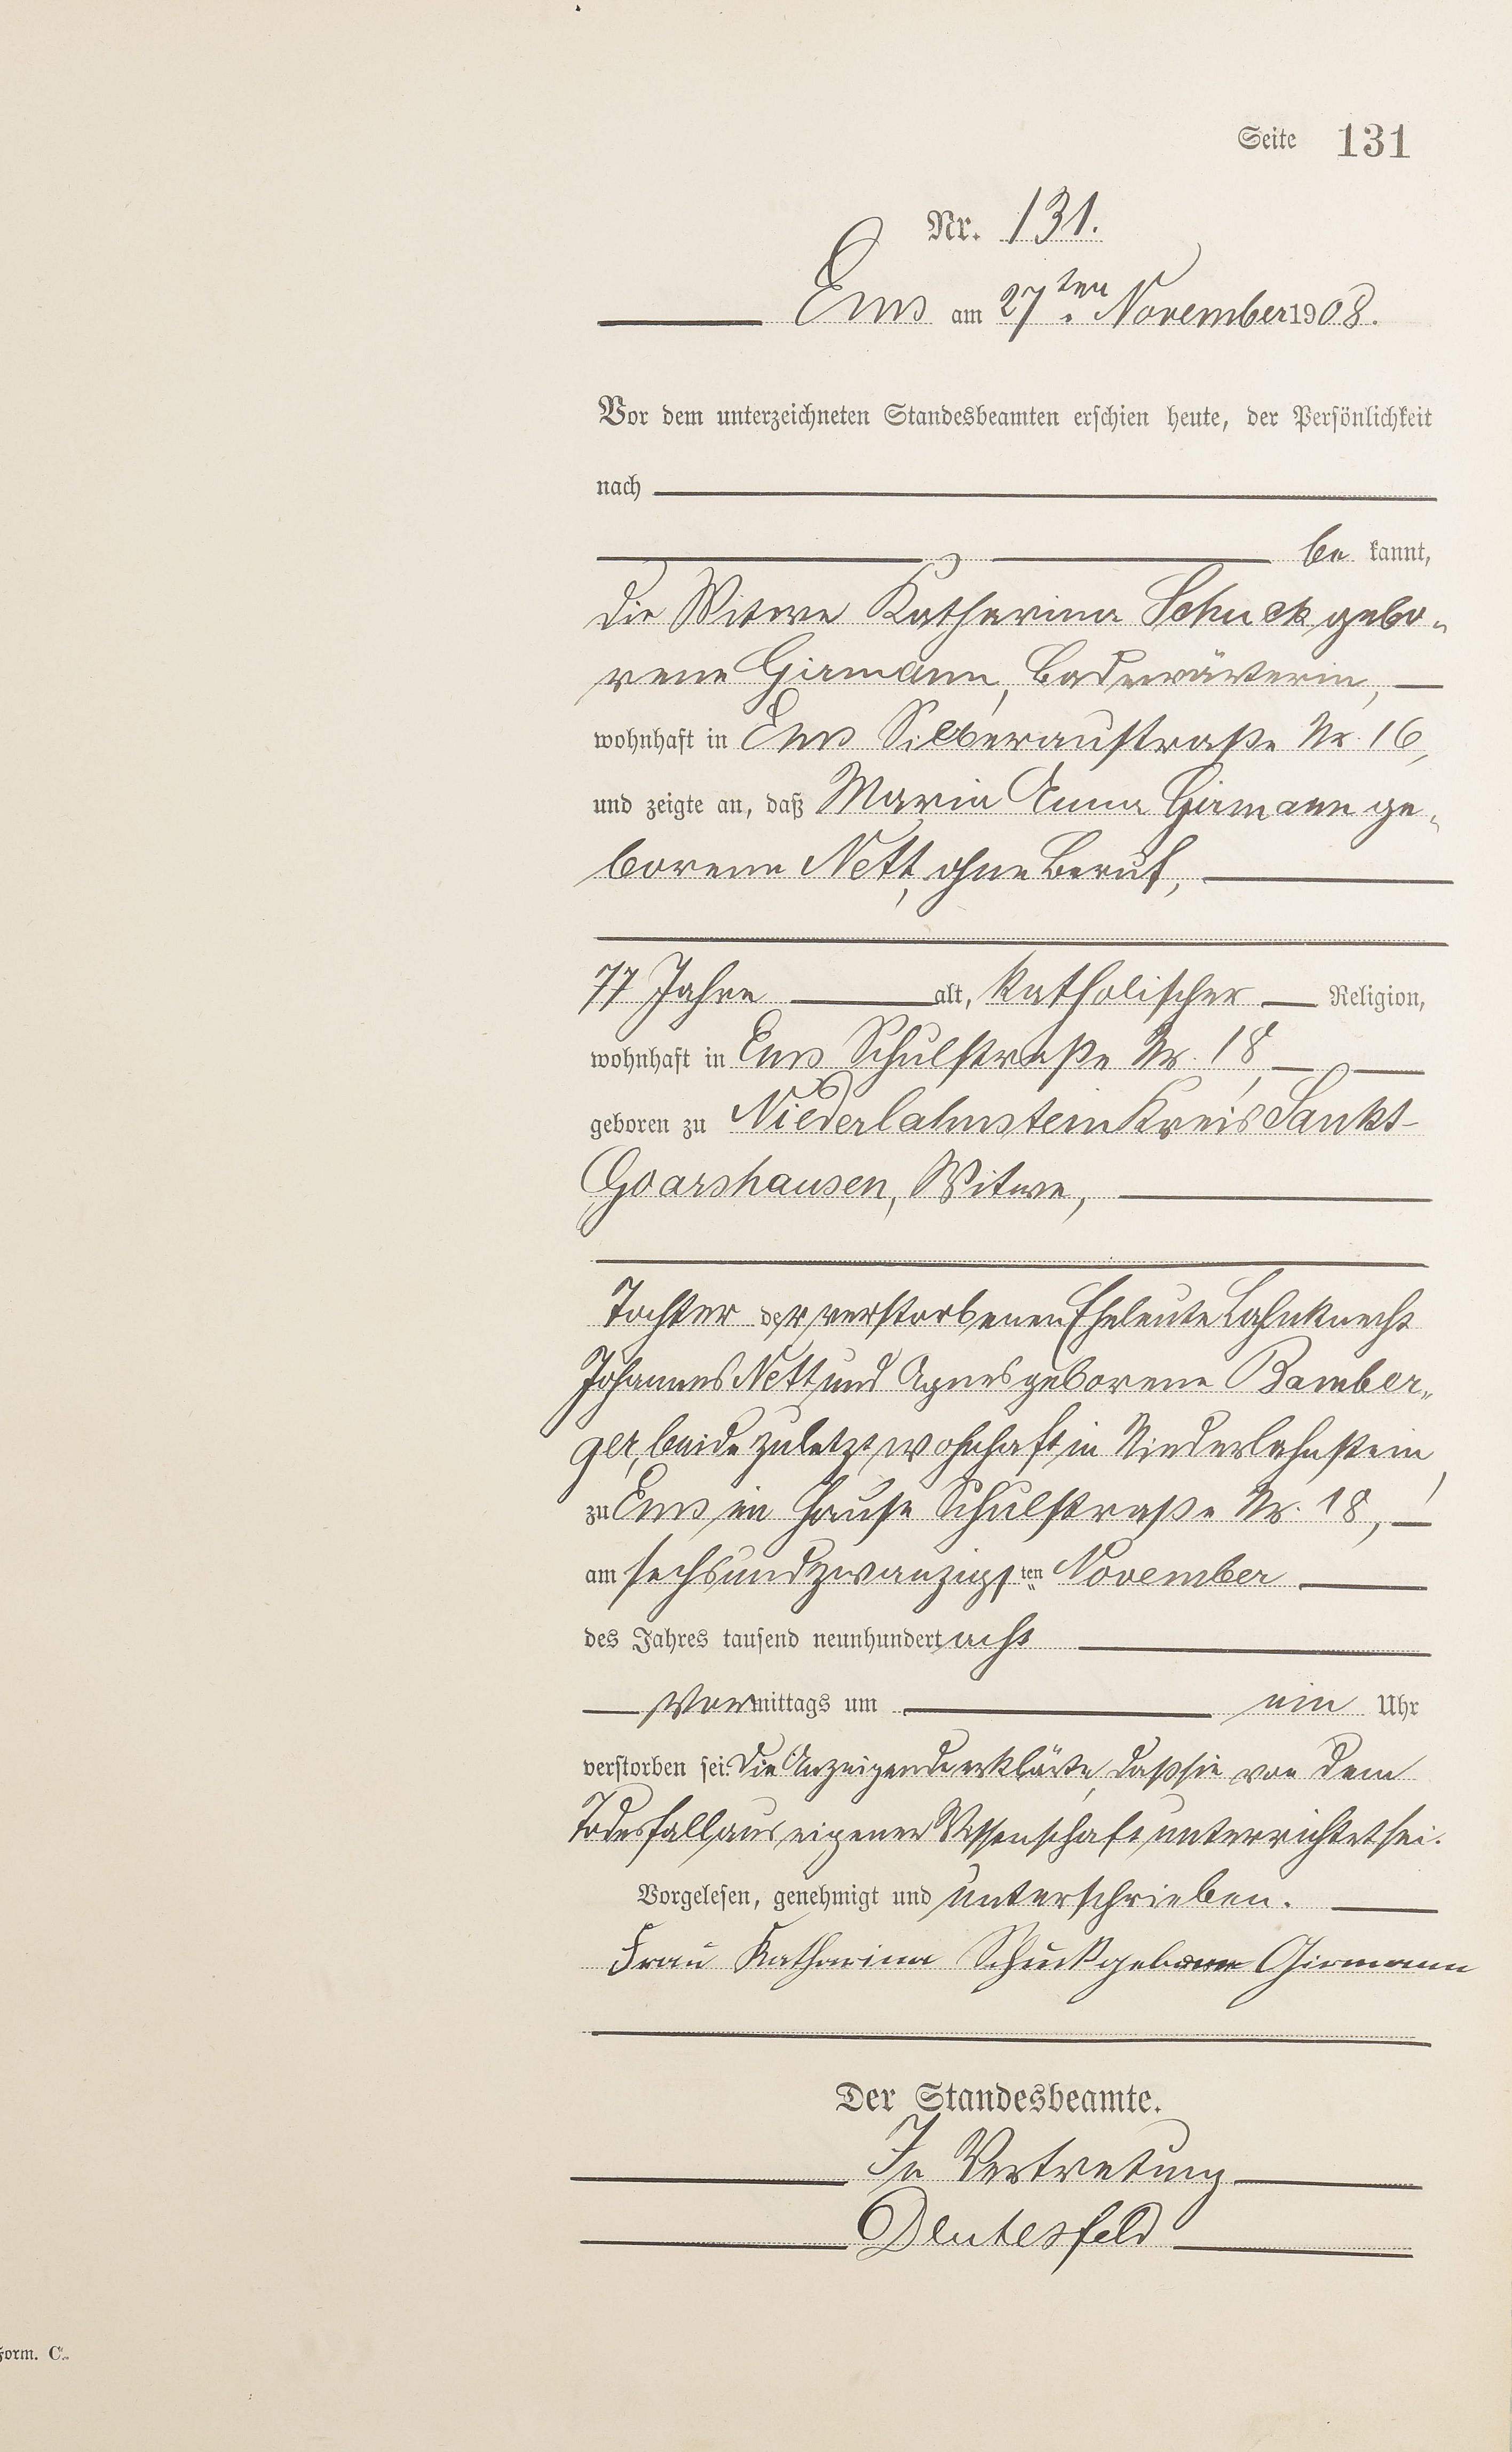 Seite 131
Nr. 131.
Ems am 27ten November 1908.
Vor dem unterzeichneten Standesbeamten erschien heute, der Persönlichkeit
nach
be kannt,
die Witwe Katharina Schuck gebo-
rene Girmann, Badewärterin,
wohnhaft in Ems Silberaustraße Nr. 16,
und zeigte an, daß Maria Anna Girmann ge-
borene Nett, ohne Beruf,
77 Jahre alt, katholischer Religion,
wohnhaft in Ems Schulstraße Nr. 18,
geboren zu Niederlahnstein Kreis Sankt-
Goarshausen, Witwe,
Tochter der verstorbenen Eheleute Lahnknecht
Johannes Nett und Agnes geborene Bamber-
ger, beide zuletzt wohnhaft in Niederlahnstein,
zu Ems im Hause Schulstraße Nr. 18,
am sechsundzwanzigsten November
des Jahres tausend neunhundert acht
Vormittags um ein Uhr
verstorben sei. Die Anzeigende erklärte, daß sie von dem
Todesfall aus eigener Wissenschaft unterrichtet sei.
Vorgelesen, genehmigt und unterschrieben.
Frau Katharina Schuck geborene Girmann
Der Standesbeamte.
In Vertretung
Deutesfeld
Form. C.